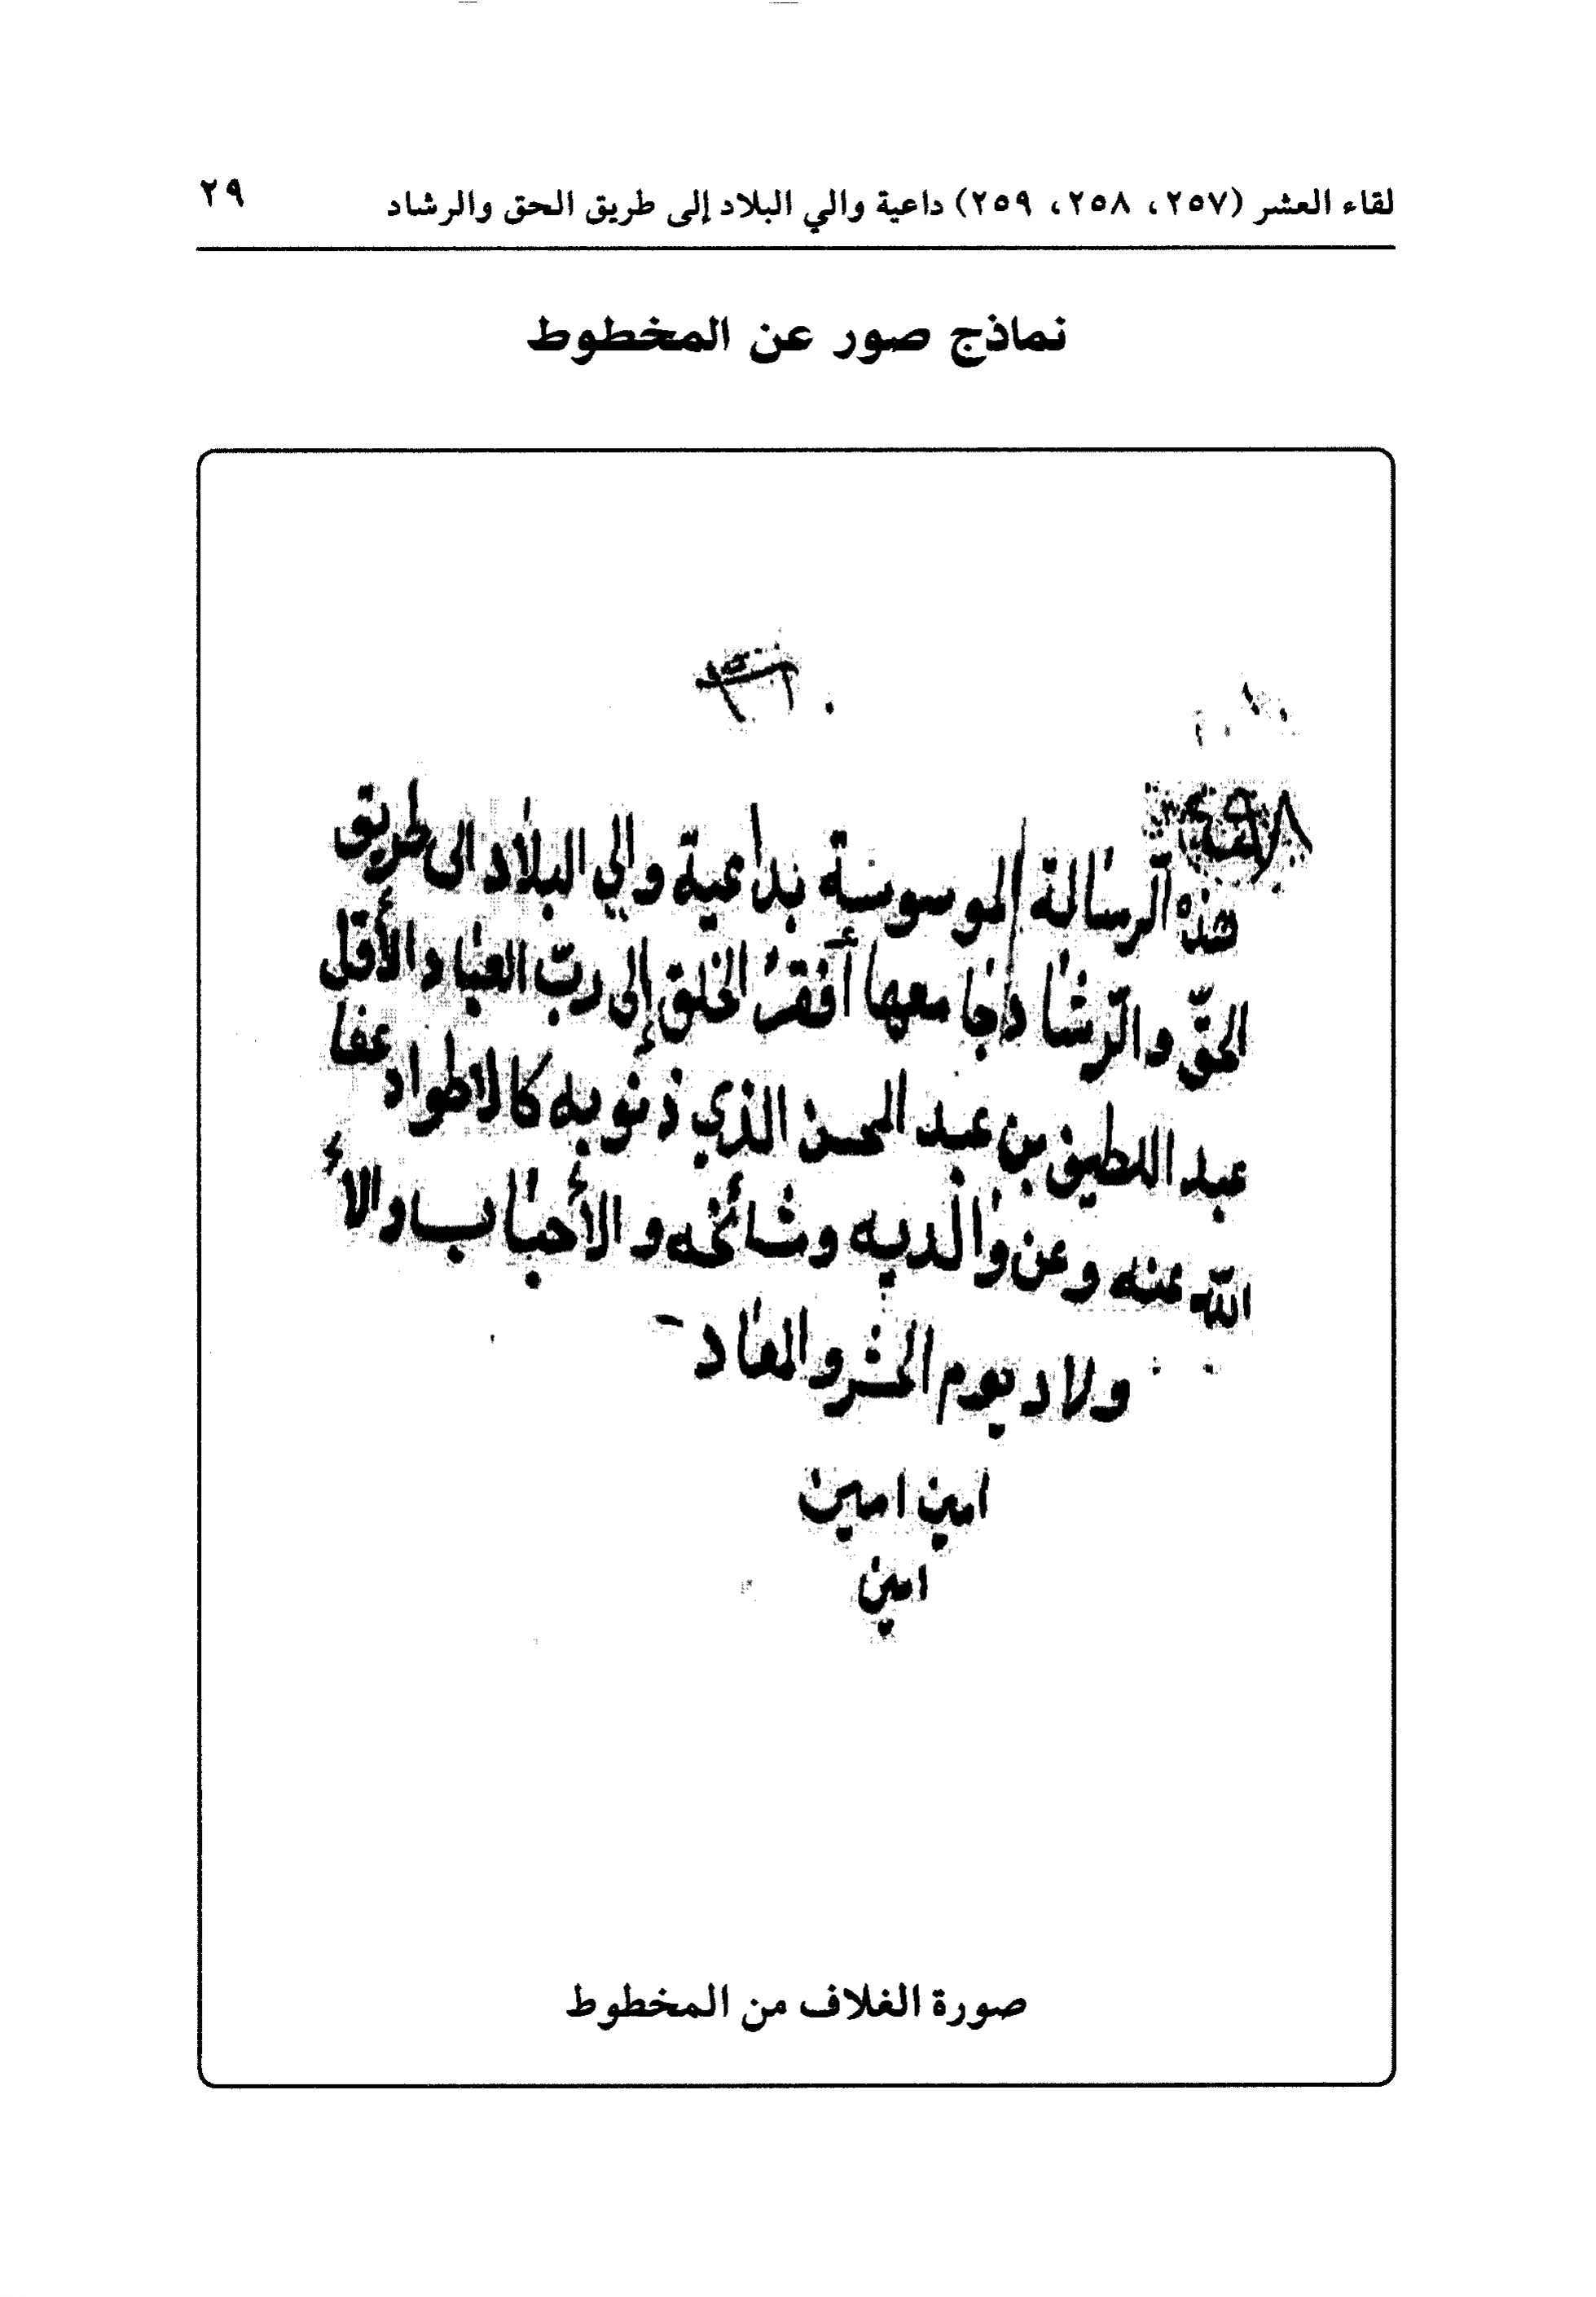 لقاء العشر (٢٥٧، ٢٥٨، ٢٥٩) داعية والي البلاد إلى طريق الحق والرشاد ٢٩
نماذج صور عن المخطوط
هذه الرسالة الموسومة بداعية والي البلاد الى طريق
الحقّ والرّشاد جامعها أفقرُ الخلق إلى ربّ العباد الأقل
عبد اللطيف بن عبد المحسن الذي ذنوبه كالاطواد عفا
اللّه عنه وعن والديه ومشائخه والأحباب والأ
ولاد يوم الحشر والمعاد
امين امين
امين
صورة الغلاف من المخطوط